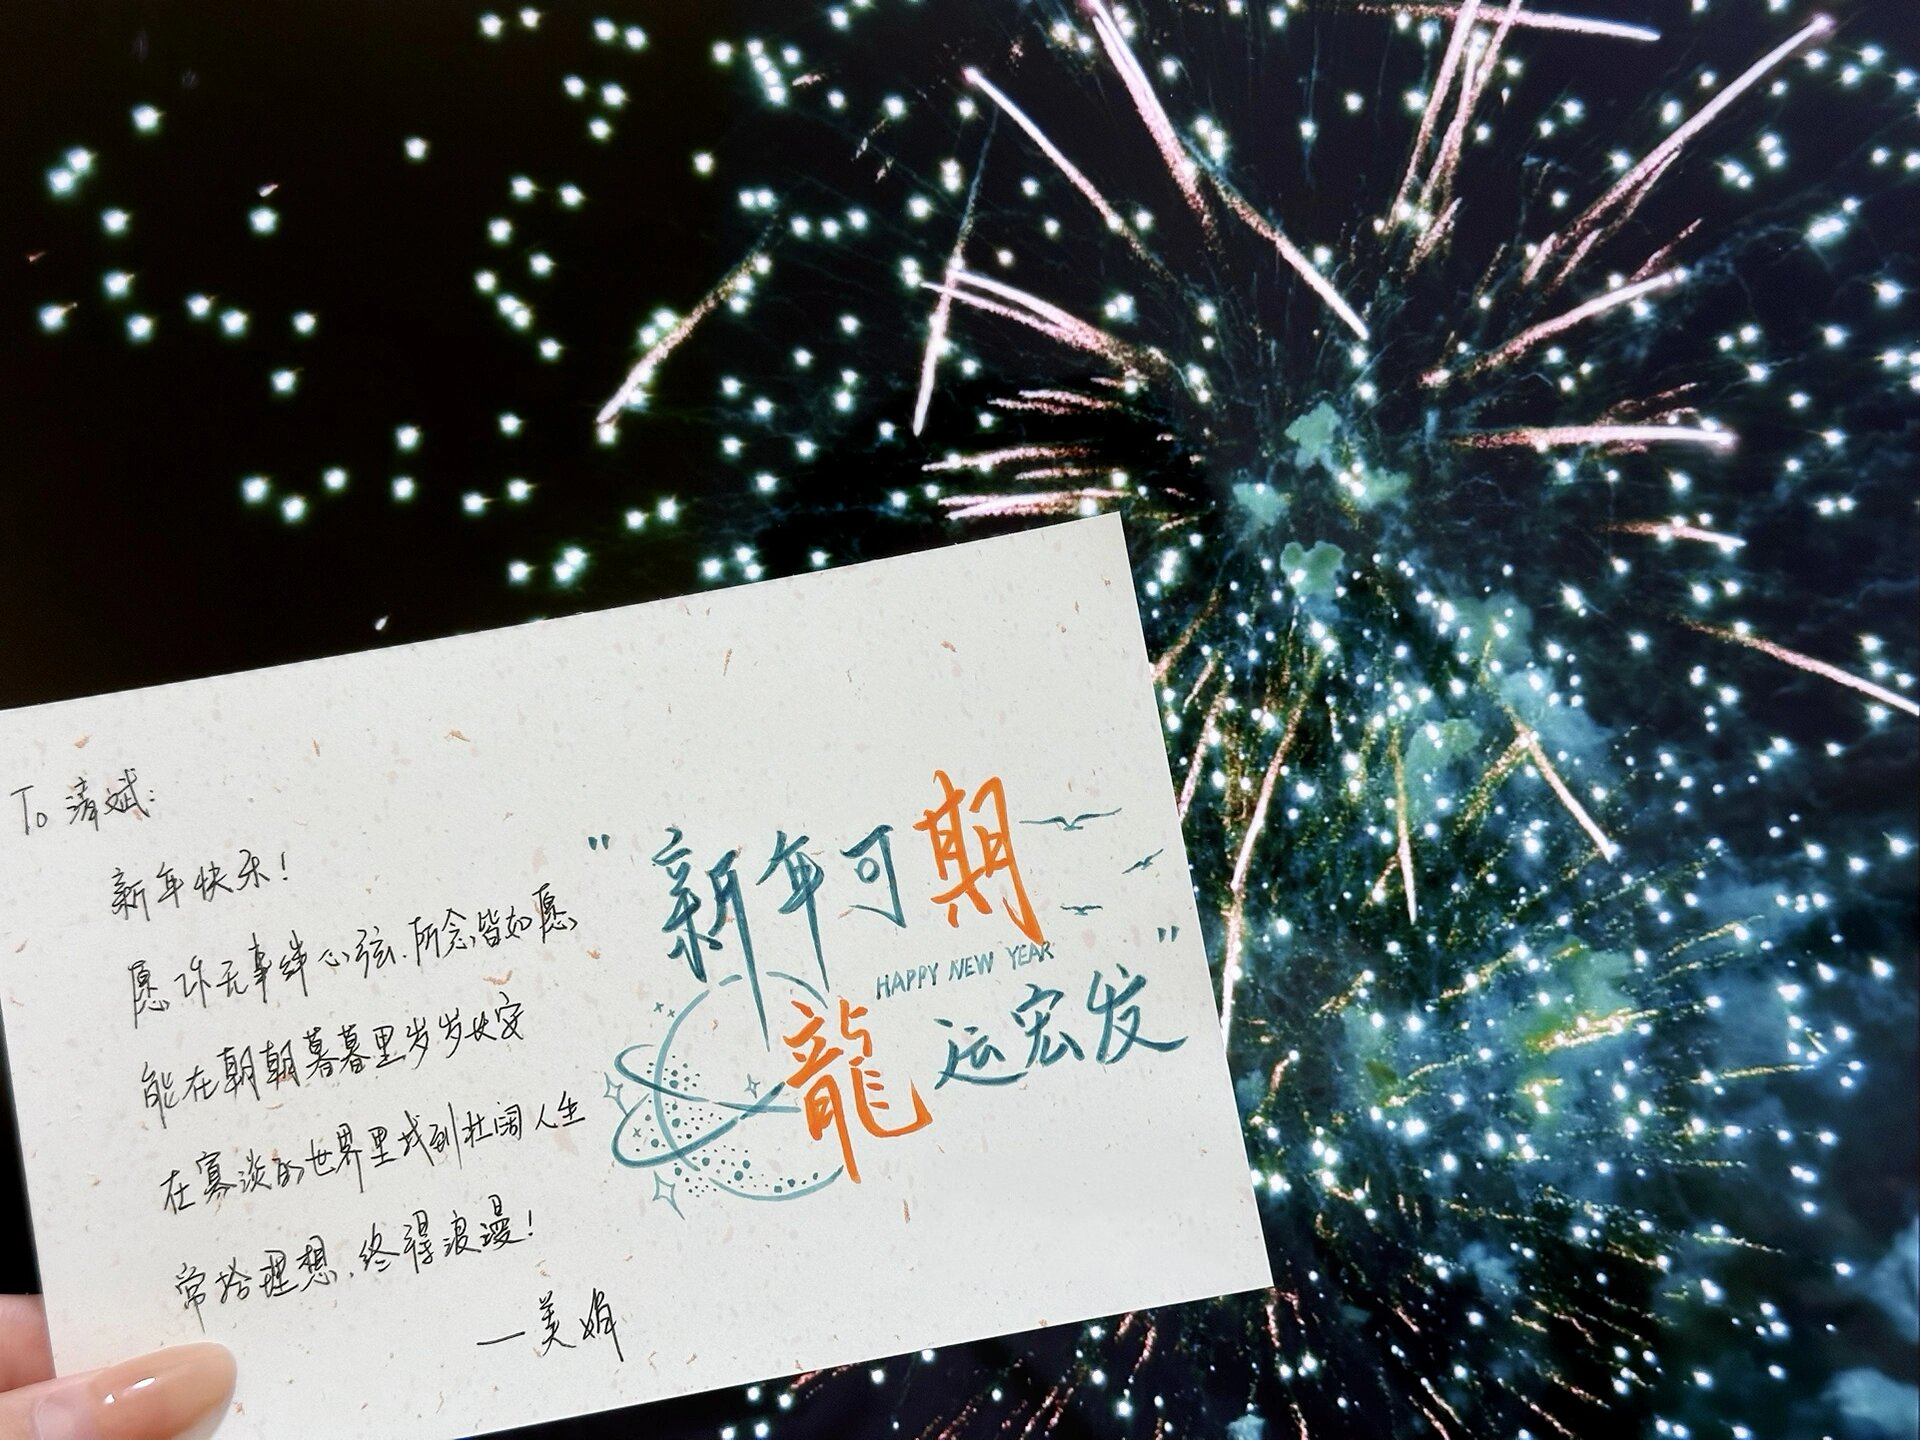 To 清斌:
新年快乐!
愿你无事绊心弦,所念皆如愿
能在朝朝暮暮里岁岁长安
在寡淡的世界里找到壮阔人生
常拾理想,终得浪漫!
—美娟
"新年可期
HAPPY NEW YEAR
龍运宏发"